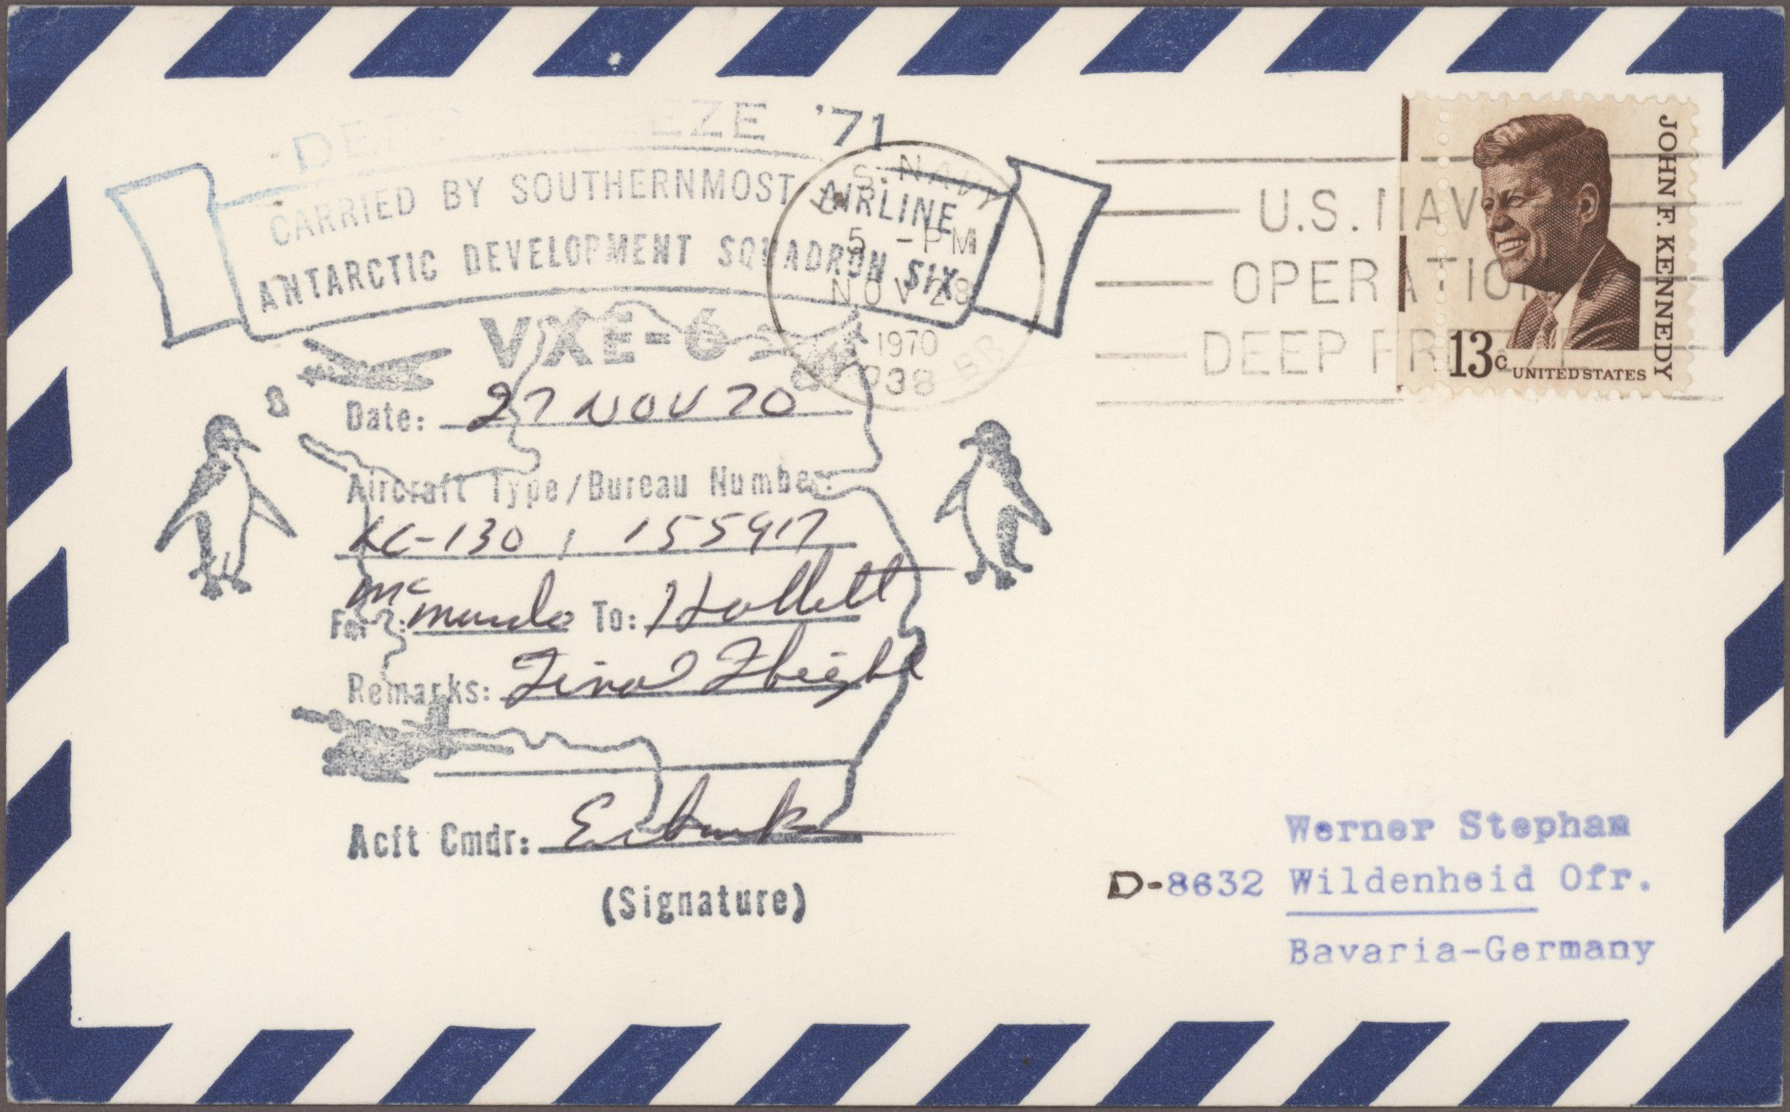 DEEP FREEZE '71
CARRIED BY SOUTHERNMOST AIRLINE
ANTARCTIC DEVELOPMENT SQUADRON SIX
VXE-6
U.S. NAVY
5 -PM
NOV 28
1970
U.S. NAVY
OPERATION
DEEP FREEZE
JOHN F. KENNEDY
13c UNITED STATES
Date: 27 NOV 70
Aircraft Type/Bureau Number:
LC-130, 155917
McMurdo To: Hallett
Remarks: Final Flight
Acft Cmdr:
(Signature)
Werner Stephan
D-8632 Wildenheid Ofr.
Bavaria-Germany